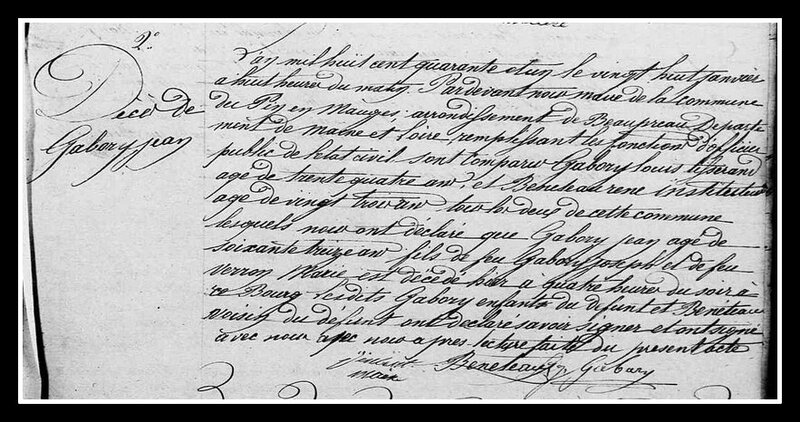 2°
Décès de
Gabory jean
L'an mil huit cent quarante et un le vingt huit janvier
a huit heures du matin Pardevant nous maire de la commune
du Pin en Mauges, arrondissement de Beaupreau Departe
ment de Maine et Loire, remplissant les fonctions d'officier
public de l'etat civil sont comparus Gabory louis tisserand
agé de trente quatre ans, et Beneteau rené instituteur
age de vingt trois ans tous les deux de cette commune
lesquels nous ont déclaré que Gabory jean agé de
soixante treize ans fils de feu Gabory joseph et de feu
Verron Marie est décédé hier à quatre heures du soir à
ce Bourg lesdits Gabory enfant du defunt et Bénéteau
voisin du défunt ont déclaré savoir signer et ont signé
avec nous apres lecture faite du present acte
maire Beneteau Gabory